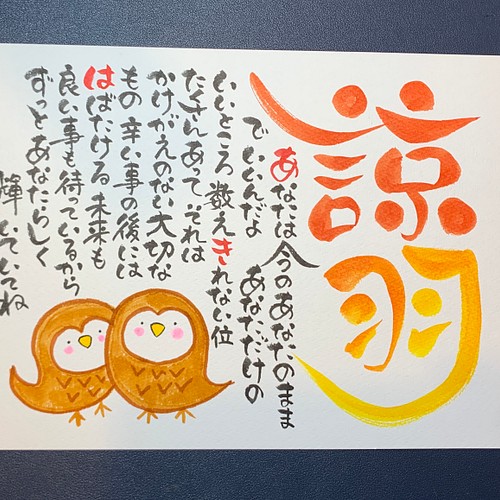 諒羽
あなたは今のあなたのまま
でいいんだよ あなただけの
いいところ 数えきれない位
たくさんあって それは
かけがえのない大切な
もの 辛い事の後には
はばたける 未来も
良い事も待っているから
ずっとあなたらしく
輝いていてね